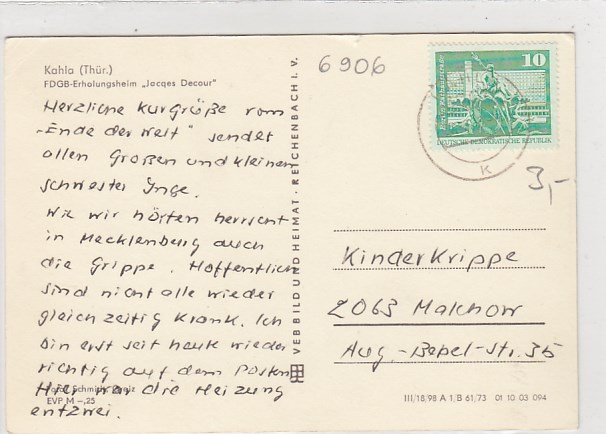 6906
Kahla (Thür.)
FDGB-Erholungsheim „Jacqes Decour"
Herzliche Kurgrüße vom
"Ende der Welt" sendet
allen Großen und kleinen
Schwester Inge.
Wie wir hörten herrscht
in Mecklenburg auch
die Grippe. Hoffentlich
sind nicht alle wieder
gleichzeitig krank. Ich
bin erst seit heute wieder
richtig auf dem Posten
Hier war die Heizung
entzwei.
Foto: Schmidt
EVP M -,25
VEB BILD UND HEIMAT · REICHENBACH I. V.
10
Berlin, Rathausstraße
DEUTSCHE DEMOKRATISCHE REPUBLIK
K
3,-
Kinderkrippe
2063 Malchow
Aug.-Bebel-Str. 35
III/18,98 A 1, B 61/73 01 10 03 094